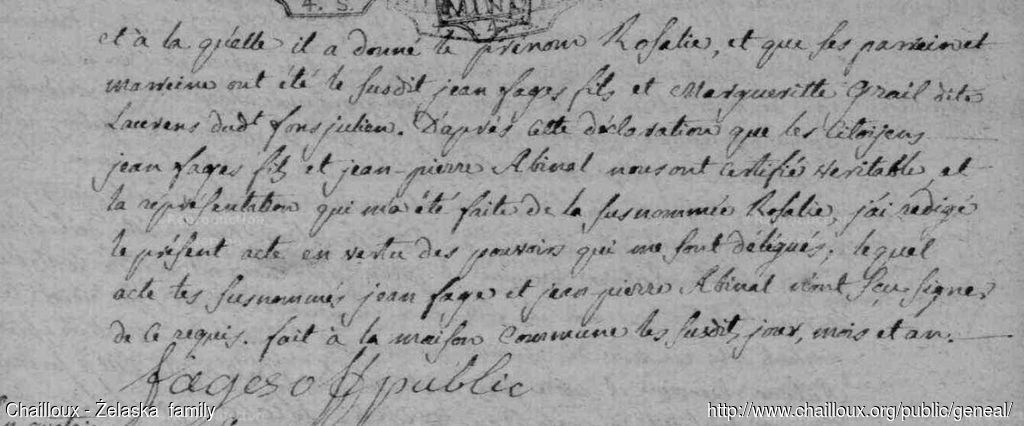 4. S.
MINI
et à la qu'elle il a donné le prénom Rosalie, et que ses parrein et
marreine ont été le susdit jean fages fils et Margueritte Grail dite
Laurens dud.t fonsjulien. D'aprés cette déclaration que les Citoijens
jean fages fils et jean-pierre Abinal nous ont Certifié veritable, et
la représentation qui m'a été faite de la susnommée Rosalie, j'ai rédigé
le présent acte en vertu des pouvoirs qui me sont délégués; lequel
acte les susnommés jean fage et jean pierre Abinal n'ont sçu signer
de ce requis. fait à la maison Commune les susdit, jour, mois et an.
fages off public
Chailloux - Żelaska family
http://www.chailloux.org/public/geneal/